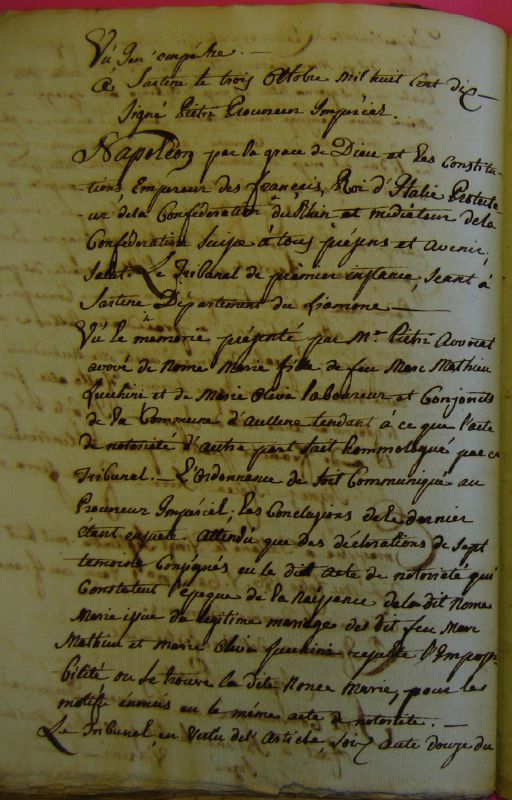 Vû Je n'empêche. —
A Sartene le trois Octobre mil huit Cent dix —
Signé Pietri Procureur Impérial.
Napoléon par la grace de Dieu et les Constitu-
tions Empereur des français, Roi d'Italie Protecte-
ur de la Confédération du Rhin et médiateur de la
Confédération Suisse à tous présens et avenir,
Salut. Le Tribunal de premier instance, Séant à
Sartene Département du Liamone —
Vû le memoire présenté par Mr Pietri Avocat
avoué de Nome Marie fille de feu Marc Mathieu
Lucchini et de Marie Olive laboureur et Conjoints
de la Commune d'Aullene tendant à ce que l'acte
de notoriété d'autre part fait hommologué par ce
Tribunal. — L'Ordonnance de Soit Communiqué au
Procureur Impérial; les Conclusions de le dernier
étant ensuite. Attendu que des déclarations de Sept
temoins Consignés en le dit acte de notoriété qui
Constatent l'époque de la Naissance de la dit Nome
Marie issue du légitime mariage des dit feu Marc
Mathieu et Marie Olive Lucchini resulte l'Impossi-
bilité ou se trouve la dite Nome Marie, pour les
motifs énoncés en le même acte de notoriété. —
Le Tribunal, en Vertu de l'Article Soix ante douze du